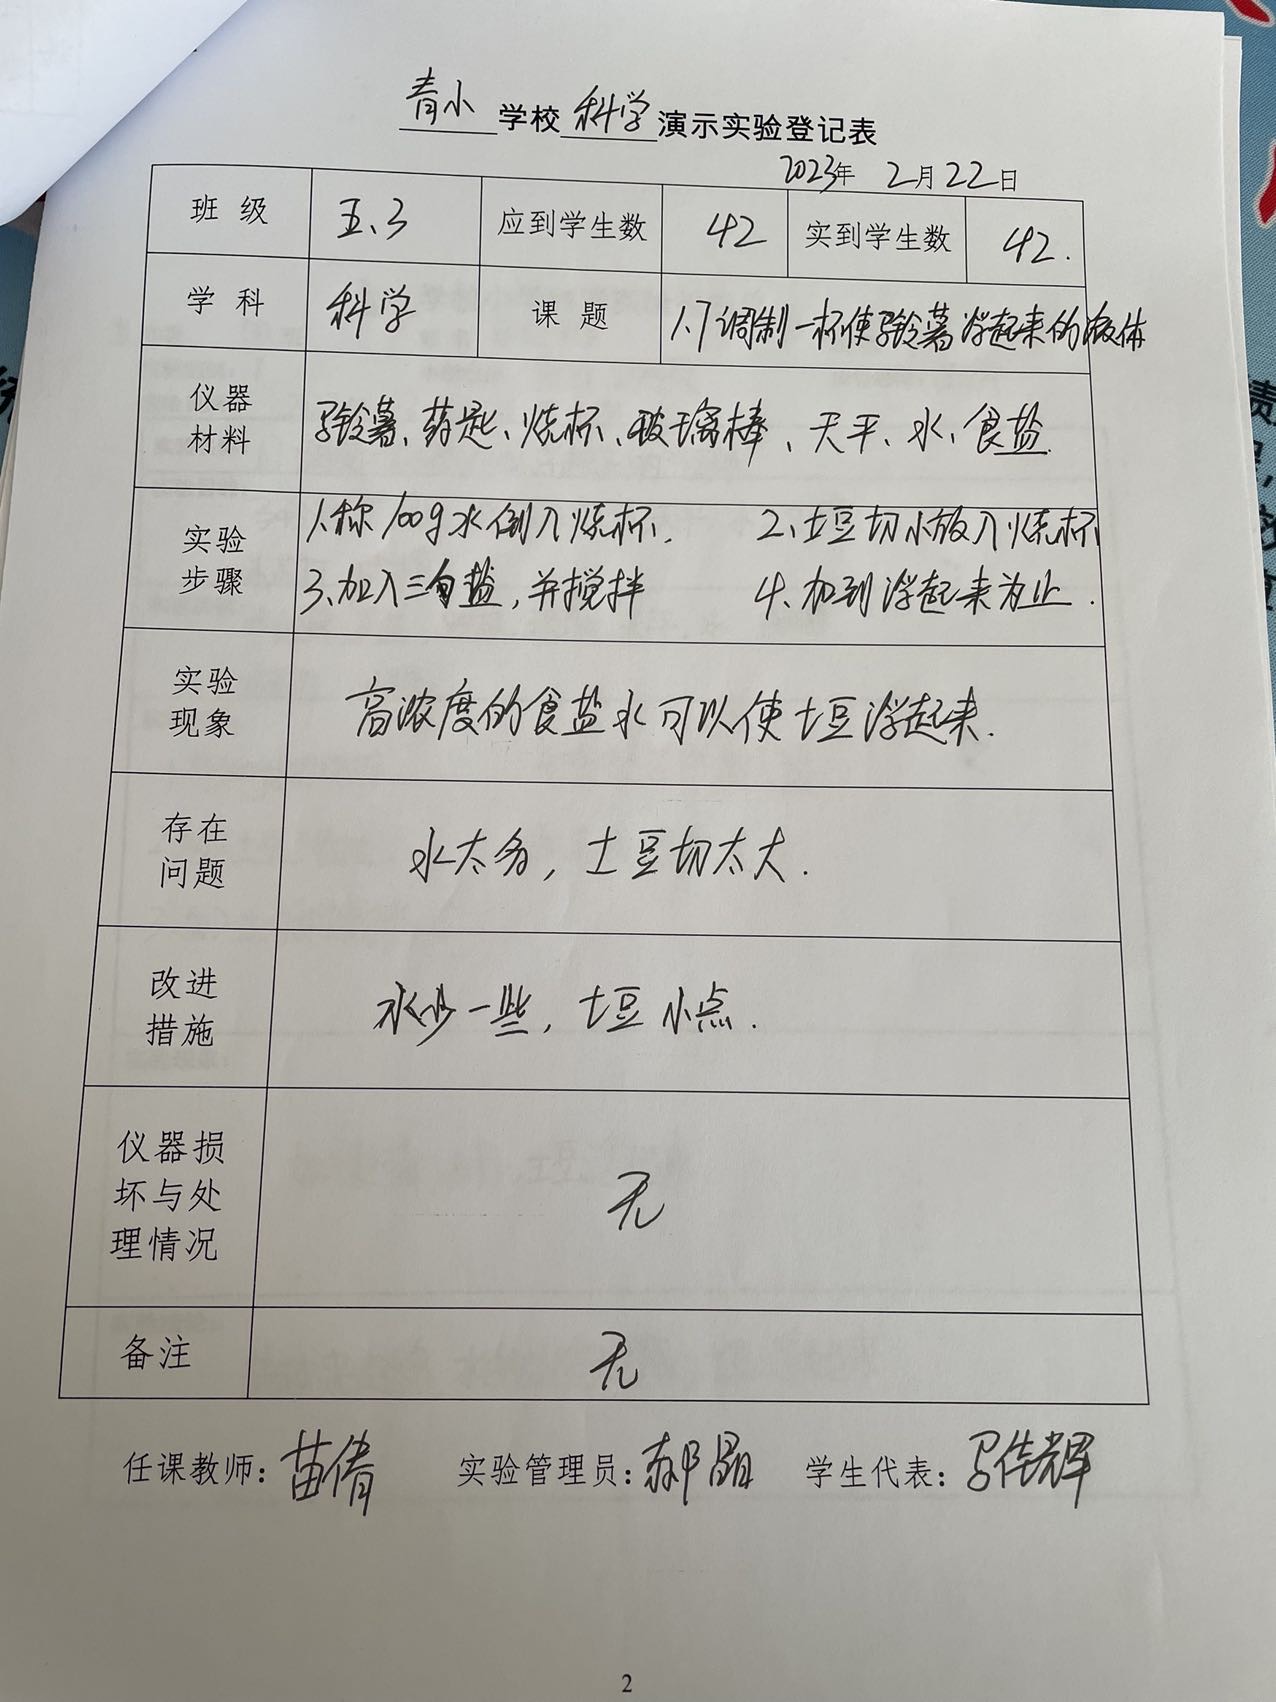 青小学校科学演示实验登记表
2023年 2月22日
班 级 五.3 应到学生数 42 实到学生数 42.
学 科 科学 课 题 1.7调制一杯使马铃薯浮起来的液体
仪器
材料
马铃薯、药匙、烧杯、玻璃棒、天平、水、食盐.
实验
步骤
1.称100g水倒入烧杯. 2.土豆切小放入烧杯
3.加入三勺盐,并搅拌 4.加到浮起来为止.
实验
现象
高浓度的食盐水可以使土豆浮起来.
存在
问题
水太多,土豆切太大.
改进
措施
水少一些,土豆小点.
仪器损
坏与处
理情况
无
备注 无
任课教师:苗倩 实验管理员:郝晶 学生代表:马佳辉
2